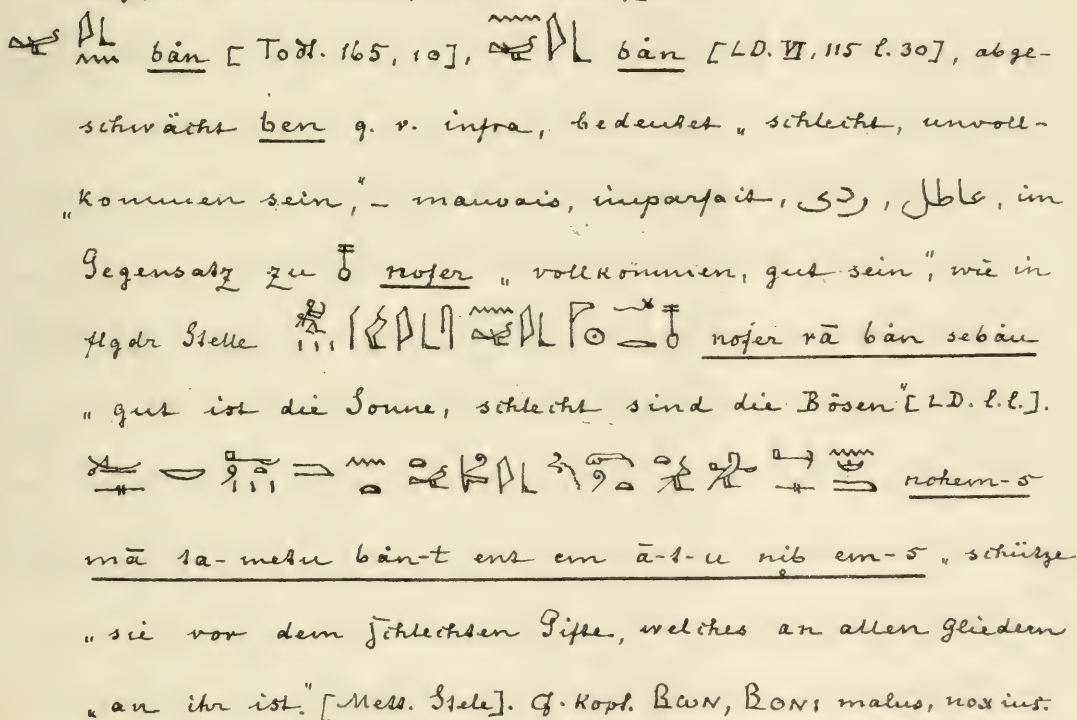 bȧn [Todt. 165, 10], bȧn [LD. VI, 115 l. 30], abge-
schwächt ben q. v. infra, bedeutet „schlecht, unvoll-
„kommen sein,“ – mauvais, imparfait, ردى, عاطل, im
Gegensatz zu nofer „vollkommen, gut sein“, wie in
flgdr Stelle nofer rā bȧn sebȧu
„gut ist die Sonne, schlecht sind die Bösen“ [LD. l. l.].
nohem-s
mā ta-metu bȧn-t ent em ā-t-u nib em-s „schütze
„sie vor dem schlechten Gifte, welches an allen Gliedern
„an ihr ist.“ [Mett. Stele]. Cf. kopt. ⲂⲰⲚ, ⲂⲞⲚⲒ malus, noxius.